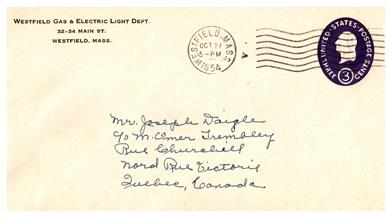 WESTFIELD GAS & ELECTRIC LIGHT DEPT.
32-34 MAIN ST.
WESTFIELD, MASS.
WESTFIELD, MASS.
OCT 21
5-PM
1954
UNITED·STATES·POSTAGE
THREE 3 CENTS
Mr. Joseph Daigle
c/o M. Elmer Trembley
Rue Churchill
Nord Rue Victoris
Quebec, Canada